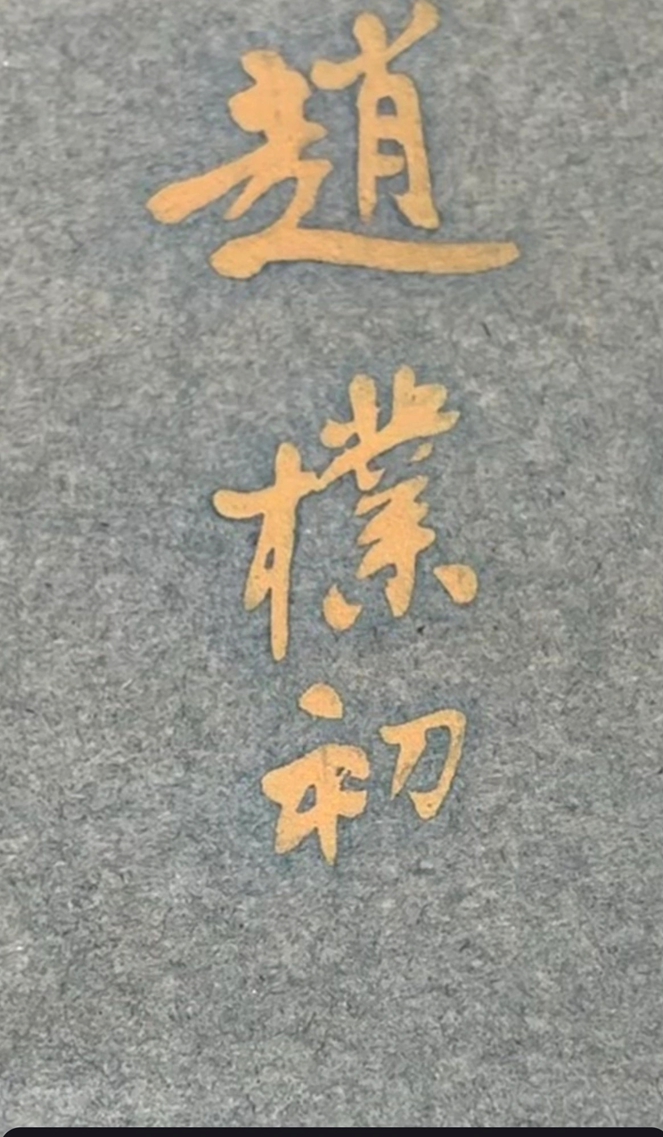 趙樸初